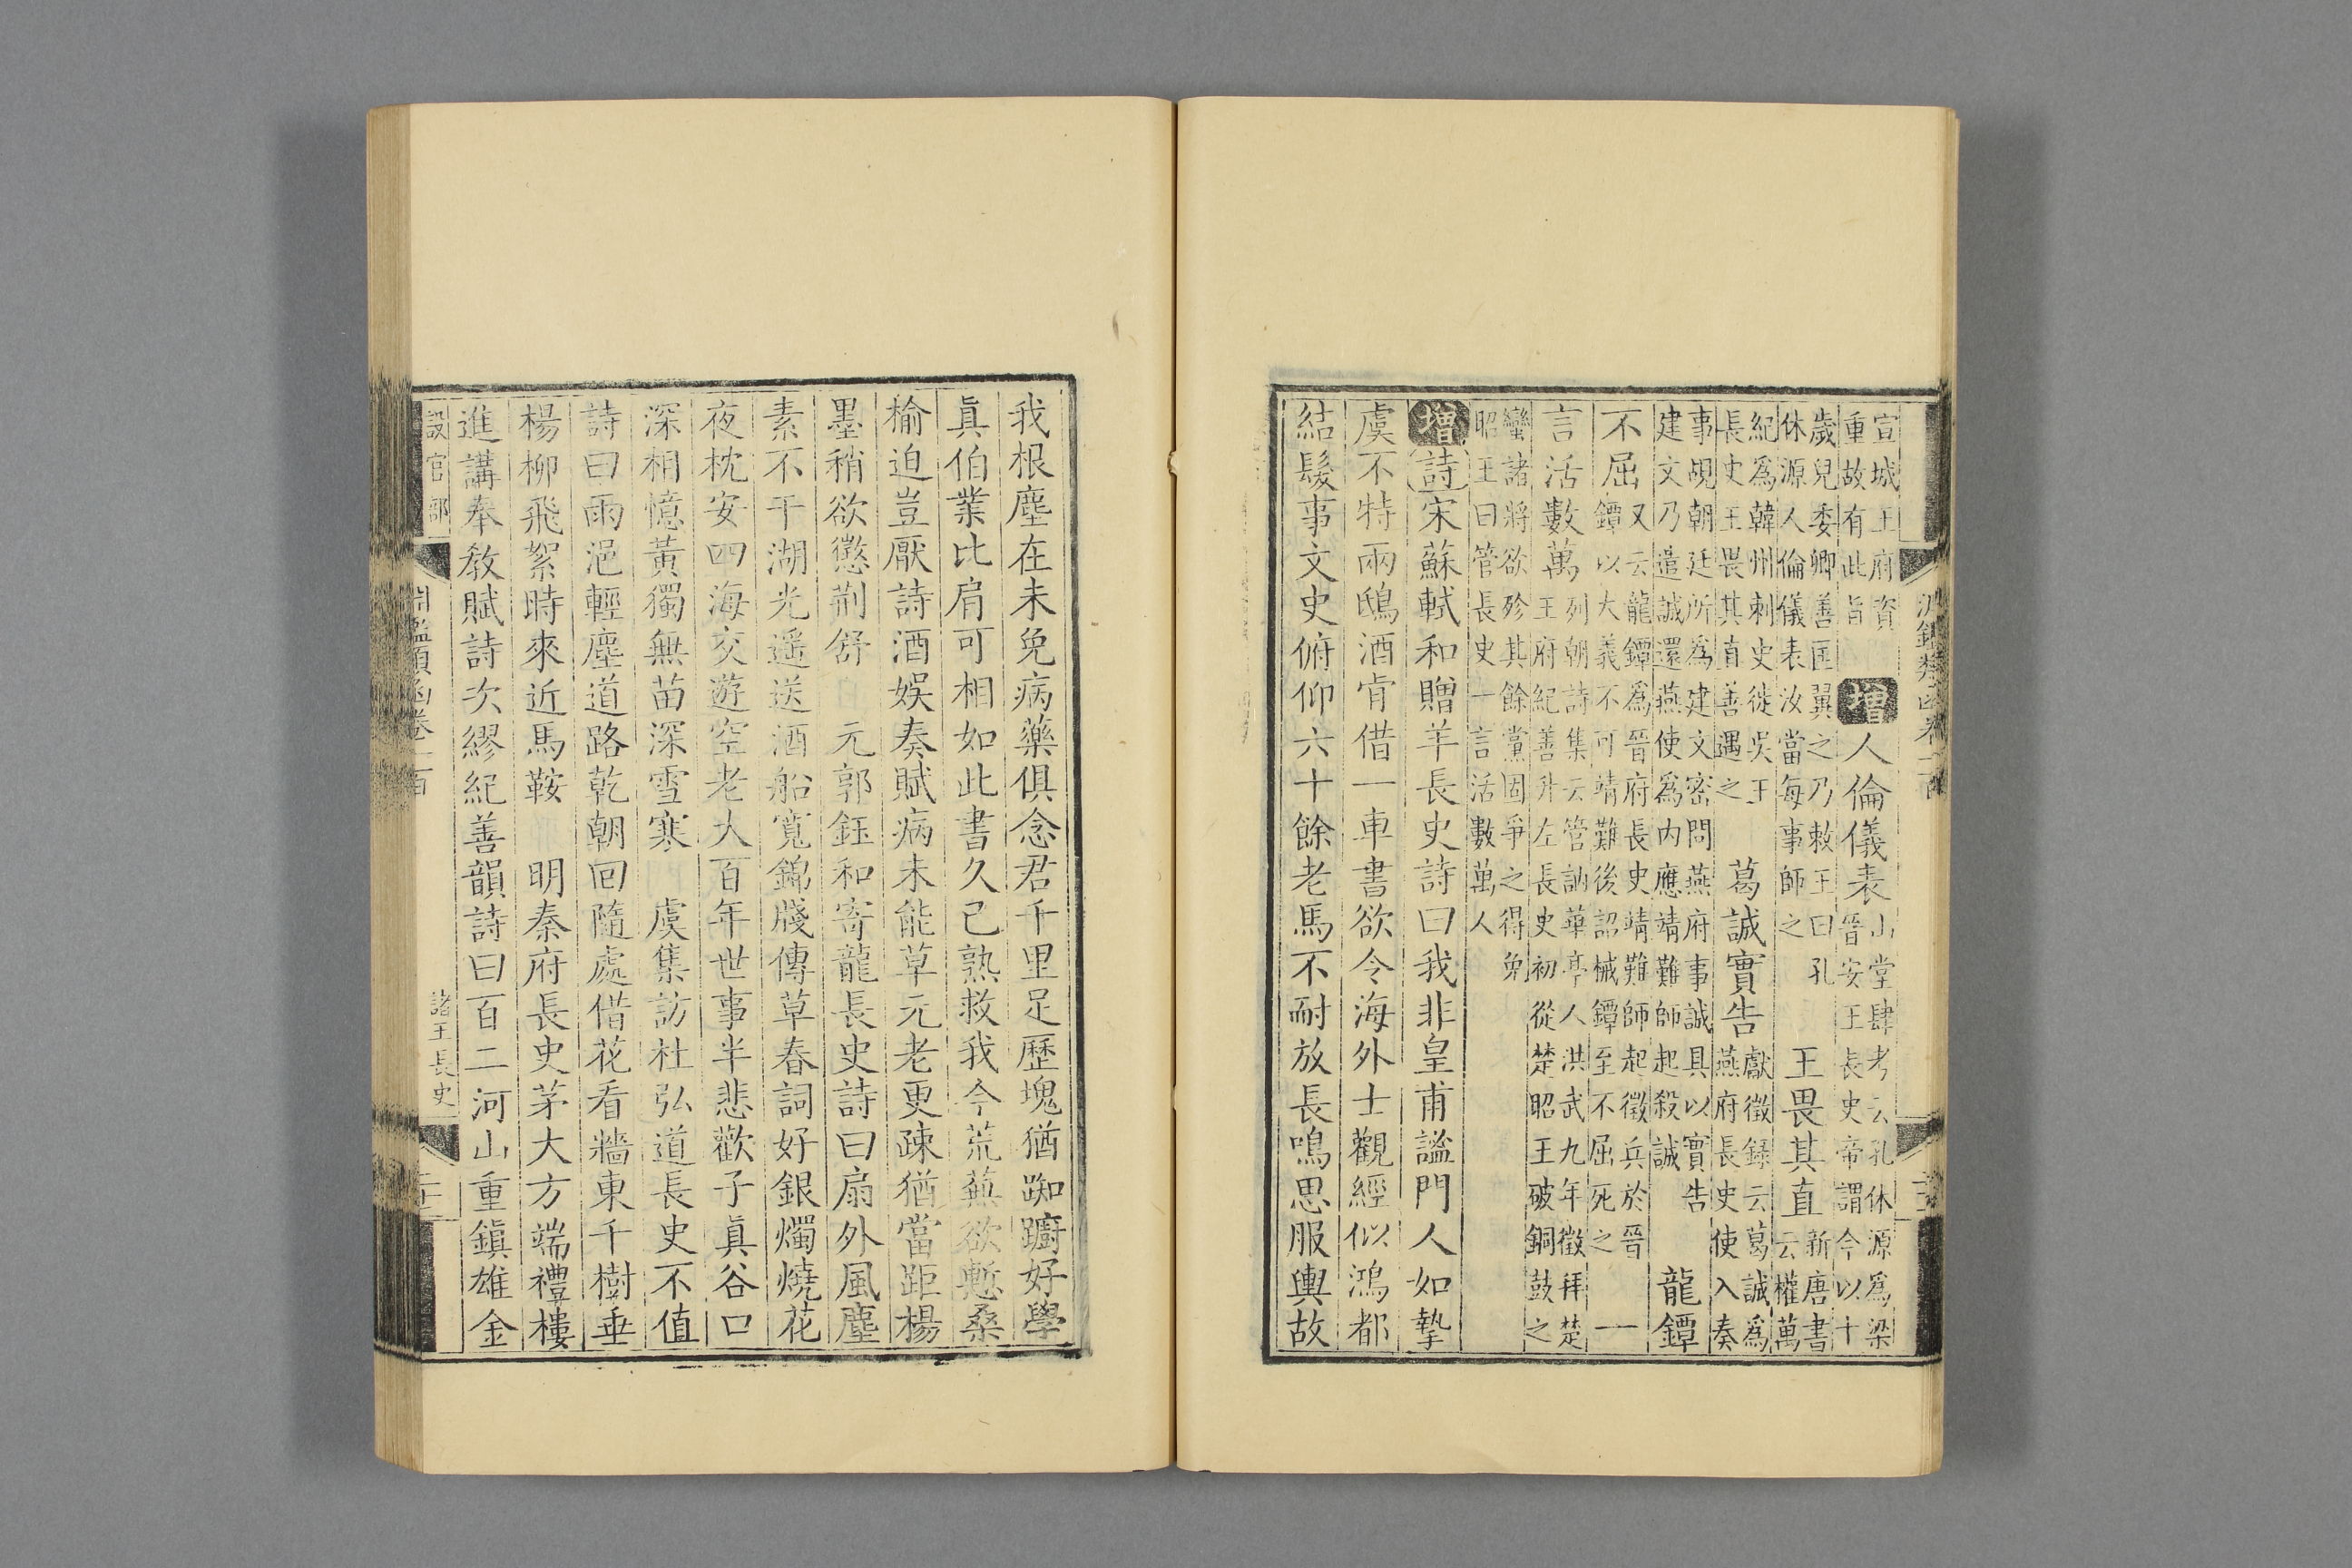 宣城王府資
重故有此旨
增人倫儀表
山堂肆考云孔休源爲梁
晉安王長史帝謂今以十
歲兒委卿善匡翼之乃敕王曰孔
休源人倫儀表汝當每事師之
王畏其直
新唐書
云權萬
紀爲韓州刺史徙吳王
長史王畏其直善遇之
葛誠實告
獻徵錄云葛誠爲
燕府長史使入奏
事覘朝廷所爲建文密問燕府事誠具以實告
建文乃遣誠還燕使爲内應靖難師起殺誠
龍鐔
不屈
又云龍鐔爲晉府長史靖難師起徵兵於晉
鐔以大義不可靖難後詔械鐔至不屈死之
一
言活數萬
列朝詩集云管訥華亭人洪武九年徵拜楚
王府紀善升左長史初從楚昭王破銅鼓之
蠻諸將欲殄其餘黨固爭之得免
昭王曰管長史一言活數萬人
增詩宋蘇軾和贈羊長史詩曰我非皇甫謐門人如摯
虞不特兩鴟酒肯借一車書欲令海外士觀經似鴻都
結髮事文史俯仰六十餘老馬不耐放長鳴思服輿故
我根塵在未免病藥俱念君千里足歷塊猶踟躕好學
眞伯業比肩可相如此書久已熟救我今荒蕪欲慙桑
榆迫豈厭詩酒娛奏賦病未能草元老更疎猶當距楊
墨稍欲懲荆舒 元郭鈺和寄龍長史詩曰扇外風塵
素不干湖光遥送酒船寬錦牋傳草春詞好銀燭燒花
夜枕安四海交遊空老大百年世事半悲歡子眞谷口
深相憶黃獨無苗深雪寒 虞集訪杜弘道長史不值
詩曰雨浥輕塵道路乾朝回隨處借花看牆東千樹垂
楊柳飛絮時來近馬鞍 明秦府長史茅大方端禮樓
進講奉敎賦詩次繆紀善韻詩曰百二河山重鎮雄金
設官部
淵鑑類函卷一百
諸王長史